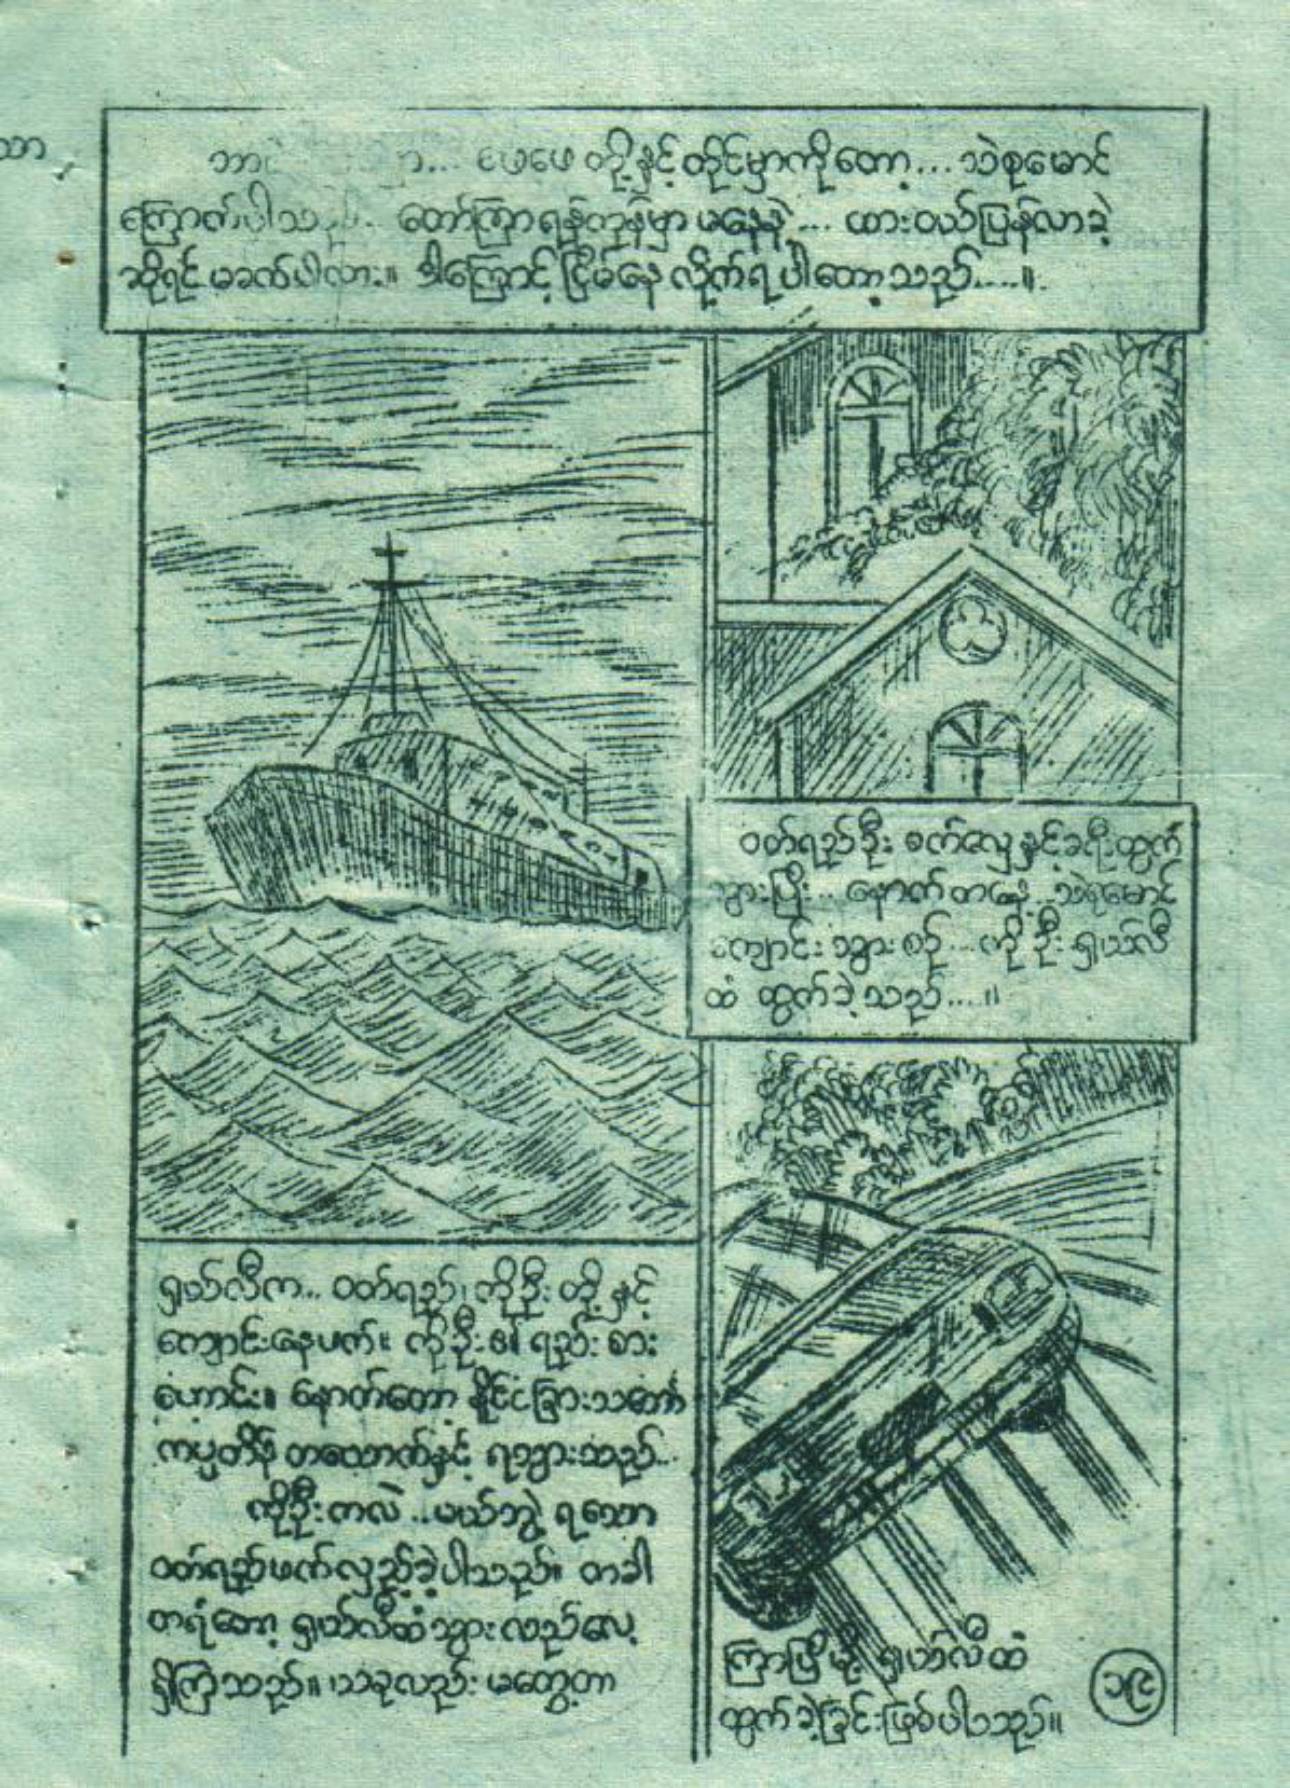 သာ
ဘာ ... ဖေဖေ တို့နှင့် တိုင်မှာကိုတော့... သဲစုမောင်
ကြောက်ပါသည်... တော်ကြာ ရန်ကုန်မှာ မနေနဲ့... ထားဝယ်ပြန်လာခဲ့
ဆိုရင် မခက်ပါလား။ ဒါကြောင့် ငြိမ်နေ လိုက်ရ ပါတော့သည်....။
ဝတ်ရည်ဦး စက်လှေနှင့်ခရီးထွက်
သွားပြီး... နောက်တနေ့... သဲစုမောင်
ကျောင်းသွားစဉ်... ကိုဦး ရှယ်လီ
ထံ ထွက်ခဲ့သည်....။
ရှယ်လီက... ဝတ်ရည်၊ ကိုဦး တို့နှင့်
ကျောင်းနေဖက်။ ကိုဦး၏ ရည်းစား
ဟောင်း။ နောက်တော့ နိုင်ငံခြားသင်္ဘော
ကပ္ပတိန် တယောက်နှင့် ရသွားသည်...
ကိုဦးကလဲ... မယ်ဘွဲ့ ရသော
ဝတ်ရည်ဖက်လှည့်ခဲ့ပါသည်။ တခါ
တရံတော့ ရှယ်လီထံသွားလည်လေ့
ရှိကြသည်။ ယခုလည်း မတွေ့တာ
ကြာပြီမို့ ရှယ်လီထံ
ထွက်ခဲ့ခြင်းဖြစ်ပါသည်။
၁၉